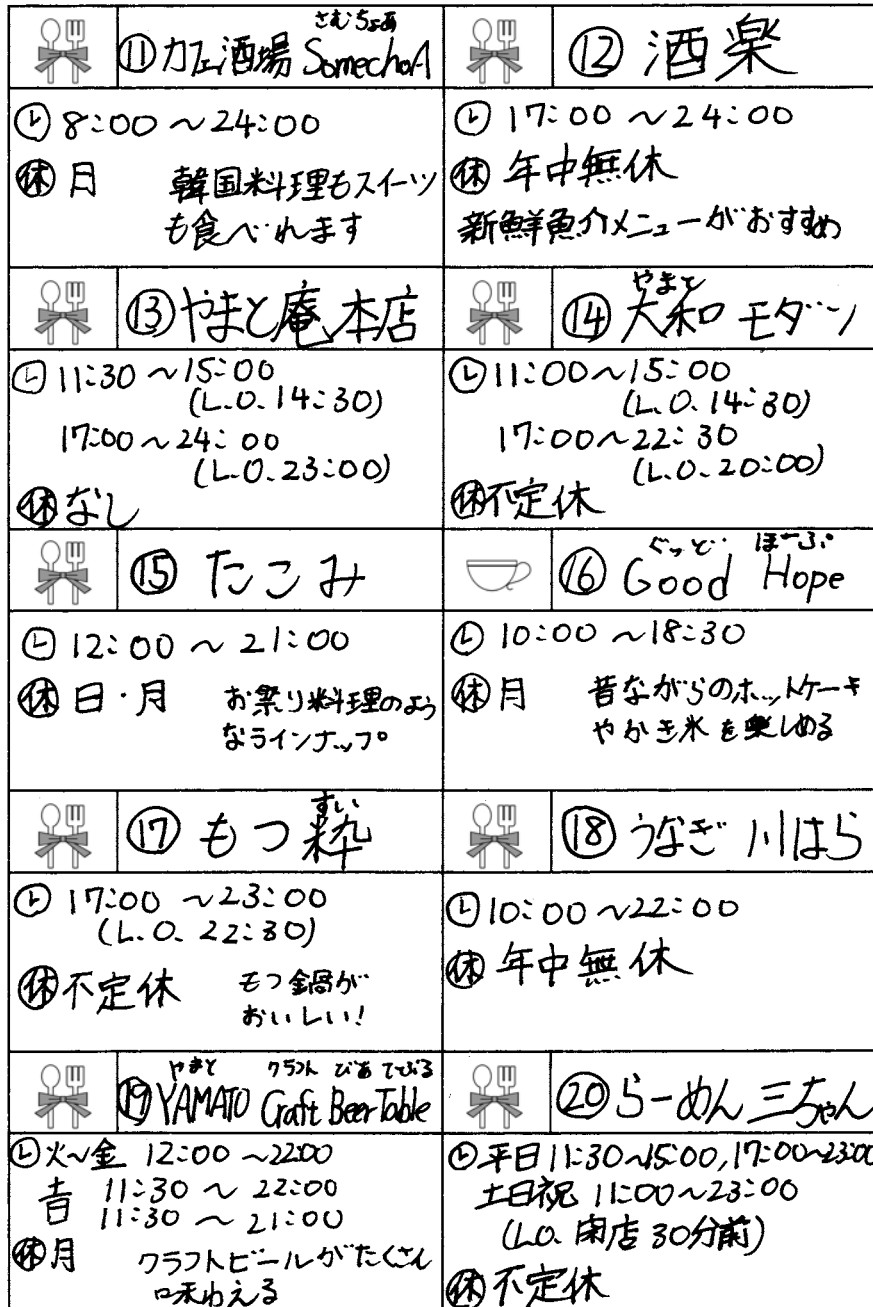 さむちょあ
⑪カフェ酒場 SomechoA
8:00 ～24:00
休 月
韓国料理もスイーツ
も食べれます
⑫ 酒楽
17:00 ～24:00
休 年中無休
新鮮魚介メニューがおすすめ
⑬やまと庵本店
11:30 ～15:00
(L.O.14:30)
17:00～24:00
(L.O.23:00)
休 なし
やまと
⑭ 大和 モダン
11:00～15:00
(L.O.14:30)
17:00～22:30
(L.O.20:00)
休不定休
⑮ たこみ
12:00 ～ 21:00
休 日・月
お祭り料理のよう
なラインナップ
ぐっど ほーぷ
⑯ Good Hope
10:00 ～18:30
休 月
昔ながらのホットケーキ
やかき氷を楽しめる
すい
⑰ もつ粋
17:00 ～23:00
(L.O. 22:30)
休 不定休
もつ鍋が
おいしい!
⑱ うなぎ 川はら
10:00 ～22:00
休 年中無休
やまと クラフト びあ てーぶる
⑲ YAMATO Craft Beer Table
火～金 12:00 ～22:00
土 11:30 ～ 22:00
日 11:30 ～ 21:00
休 月
クラフトビールがたくさん
味わえる
⑳ らーめん 三ちゃん
平日 11:30～15:00,17:00～23:00
土日祝 11:00～23:00
(L.O. 閉店 30分前)
休 不定休